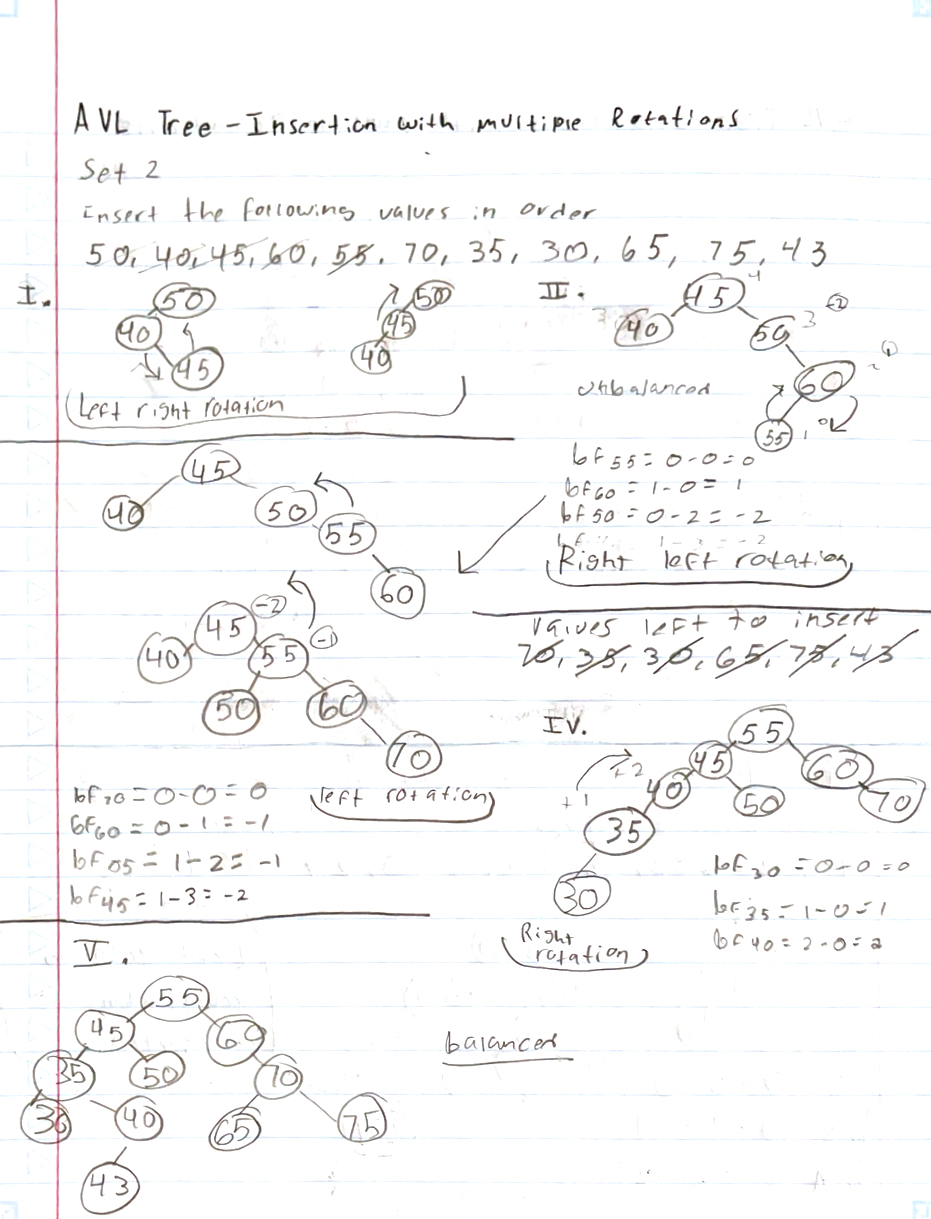 AVL Tree - Insertion with multiple Rotations
Set 2
Insert the following values in order
50, 40, 45, 60, 55, 70, 35, 30, 65, 75, 43
I.
50
40
45
50
45
40
Left right rotation
II.
45
4
40
3
50
3
-2
60
1
2
55
1
0
Unbalanced
bf55 = 0-0=0
bf60 = 1-0= 1
bf50 = 0-2=-2
Right left rotation
45
40
50
55
60
45
-2
40
55
-1
50
60
70
left rotation
bf70 = 0-0 = 0
bf60 = 0-1 = -1
bf55 = 1-2 = -1
bf45 = 1-3 = -2
Values left to insert
70, 35, 30, 65, 75, 43
IV.
55
45
60
+2
40
50
70
+1
35
30
Right
rotation
bf30 = 0-0=0
bf35 = 1-0=1
bf40 = 2-0=2
V.
55
45
60
35
50
70
30
40
65
75
43
balanced